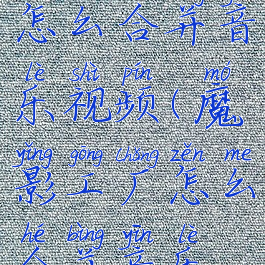 怎么合并音
lè shì pín mó
乐视频(魔
yǐng gōng chǎng zěn me
影工厂怎么
hé bìng yīn lè
合并音乐